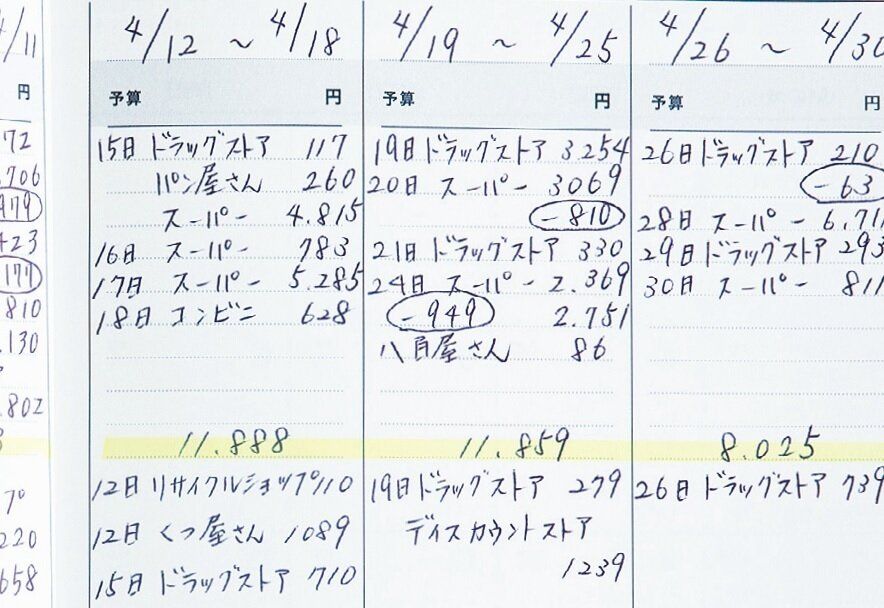 4/11
円
72
706
979
423
177
810
.130
.802
7°
220
658
4/12 ~ 4/18
予算 円
15日 ドラッグストア 117
パン屋さん 260
スーパー 4.815
16日 スーパー 783
17日 スーパー 5.285
18日 コンビニ 628
11.888
12日 リサイクルショップ 110
12日 くつ屋さん 1089
15日 ドラッグストア 710
4/19 ~ 4/25
予算 円
19日 ドラッグストア 3254
20日 スーパー 3069
-810
21日 ドラッグストア 330
24日 スーパー 2.369
-949 2.751
八百屋さん 86
11.859
19日 ドラッグストア 279
ディスカウントストア
1239
4/26 ~ 4/30
予算 円
26日 ドラッグストア 210
-63
28日 スーパー 6.711
29日 ドラッグストア 293
30日 スーパー 811
8.025
26日 ドラッグストア 739